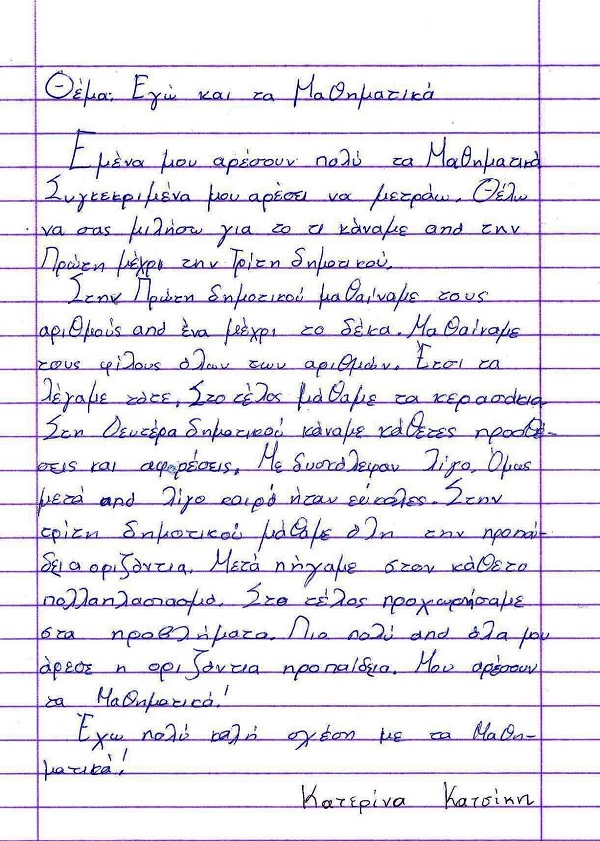 Θέμα: Εγώ και τα Μαθηματικά
Εμένα μου αρέσουν πολύ τα Μαθηματικά
Συγκεκριμένα μου αρέσει να μετράω. Θέλω
να σας μιλήσω για το τι κάναμε από την
Πρώτη μέχρι την Τρίτη δημοτικού.
Στην Πρώτη δημοτικού μαθαίναμε τους
αριθμούς από ένα μέχρι το δέκα. Μαθαίναμε
τους φίλους όλων των αριθμών. Έτσι τα
λέγαμε τότε. Στο τέλος μάθαμε τα κερασάκια.
Στη Δευτέρα δημοτικού κάναμε κάθετες προσθέ-
σεις και αφαρέσεις. Με δυσκόλεψαν λίγο. Όμως
μετά από λίγο καιρό ήταν εύκολες. Στην
τρίτη δημοτικού μάθαμε όλη την προπαί-
δεια οριζόντια. Μετά πήγαμε στον κάθετο
πολλαπλασιασμό. Στο τέλος προχωρήσαμε
στα προβλήματα. Πιο πολύ από όλα μου
άρεσε η οριζόντια προπαίδεια. Μου αρέσουν
τα Μαθηματικά!
Έχω πολύ καλή σχέση με τα Μαθη-
ματικά!
Κατερίνα Κατσίκη